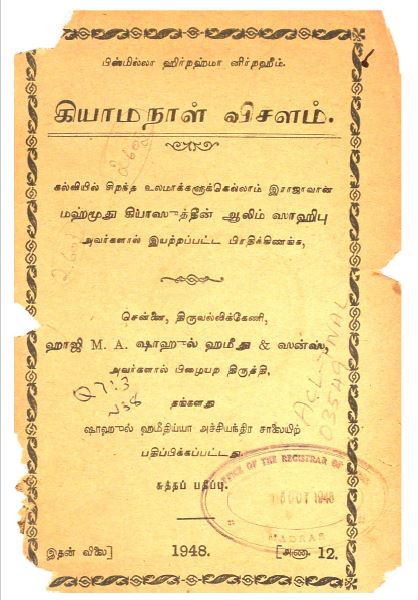 பிஸ்மில்லா ஹிர்றஹ்மா னிர்றஹீம்.
கியாமநாள் விசளம்.
கல்வியில் சிறந்த உலமாக்களுக்கெல்லாம் இராஜாவான
மஹ்மூது கியாஸுத்தீன் ஆலிம் ஸாஹிபு
அவர்களால் இயற்றப்பட்ட பிரதிக்கிணங்க,
சென்னை, திருவல்லிக்கேணி,
ஹாஜி M. A. ஷாஹுல் ஹமீது & ஸன்ஸ்,
அவர்களால் பிழையற திருத்தி,
தங்களது
ஷாஹுல் ஹமீதிய்யா அச்சியந்திர சாலையிற்
பதிப்பிக்கப்பட்டது.
சுத்தப் பதிப்பு.
இதன் விலை] 1948. [அணா 12.
Q7:3
N38
ACL-TNAL
03549
OFFICE OF THE REGISTRAR OF
OCT 1948
MADRAS